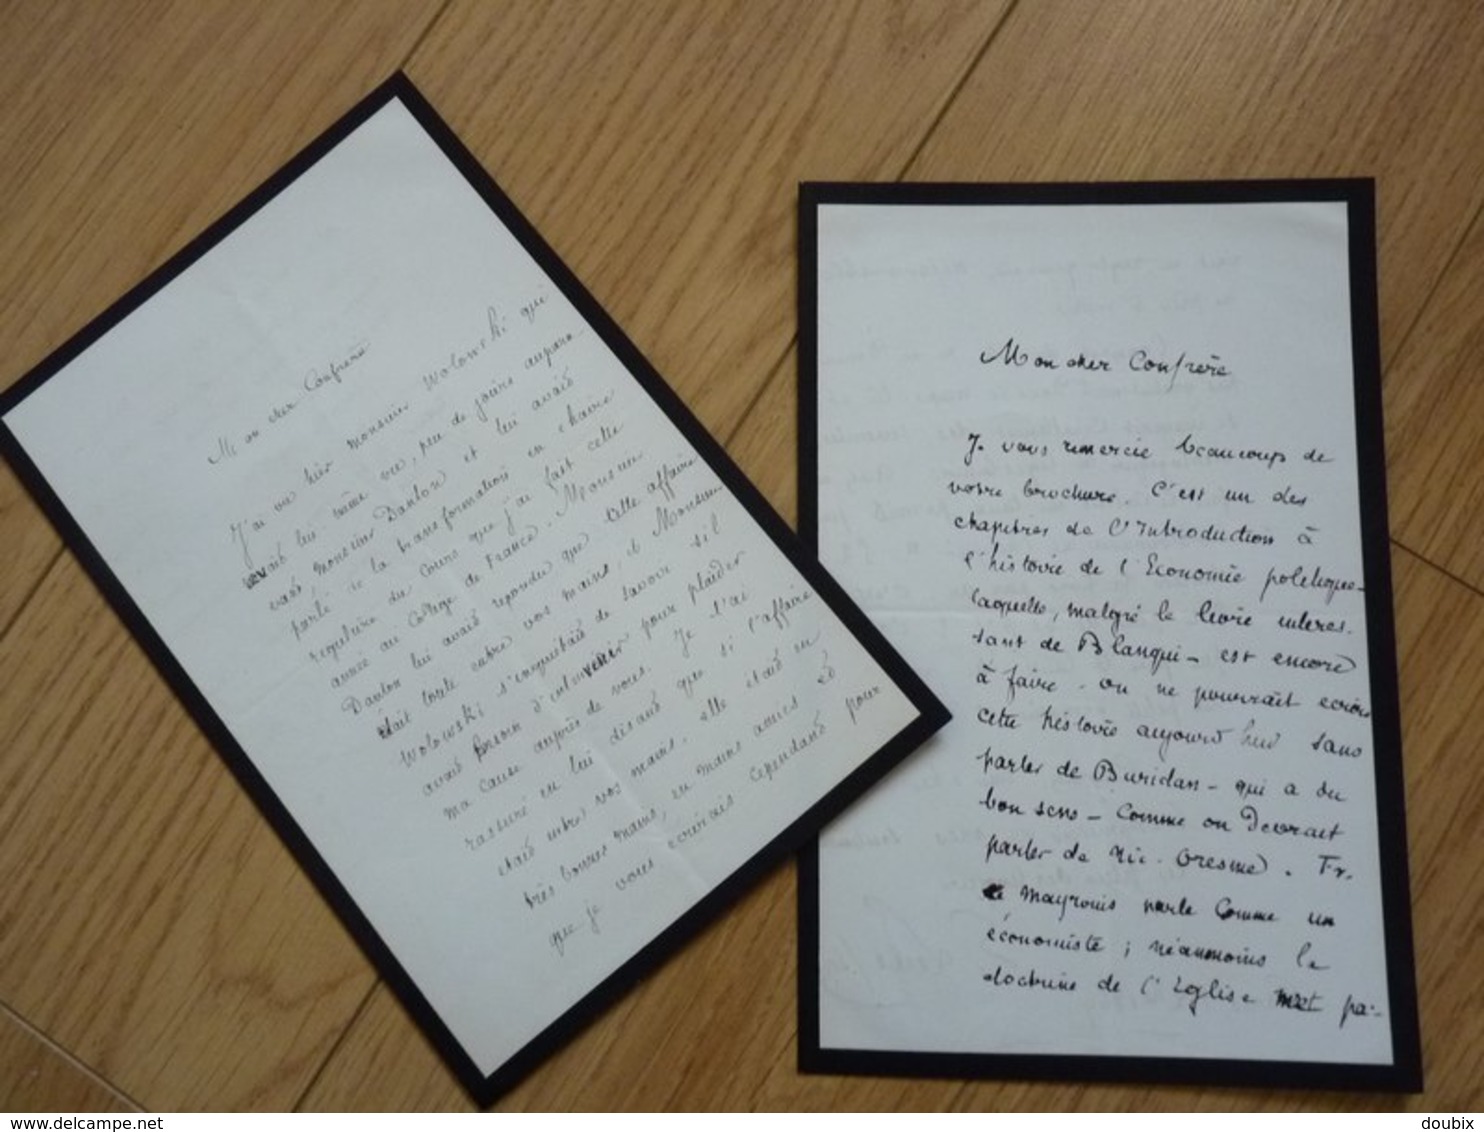 Mon cher Confrère
J'ai vu hier monsieur Wolowski qui
avait lui même vu, peu de jours aupara-
vant, monsieur Danton et lui avait
parlé de la transformation en chaire
régulière du cours que j'ai fait cette
année au Collège de France. Monsieur
Danton lui avait répondu que cette affaire
était toute entre vos mains, et Monsieur
Wolowski s'inquiétait de savoir s'il
avait besoin d'intervenir pour plaider
ma cause auprès de vous. Je l'ai
rassuré en lui disant que si l'affaire
était entre vos mains, elle était en
très bonnes mains, en mains amies et
que je vous écrirais cependant pour
Mon cher Confrère
Je vous remercie beaucoup de
votre brochure. C'est un des
chapitres de l'Introduction à
l'histoire de l'Economie politique-
laquelle, malgré le livre intéres-
sant de Blanqui - est encore
à faire. on ne pourrait écrire
cette histoire aujourd'hui sans
parler de Buridan - qui a du
bon sens - Comme on Devrait
parler de Nic. Oresme. Fr.
de Mayronis parle Comme un
économiste ; néanmoins la
doctrine de l'Eglise met pa-
www.delcampe.net
doubix